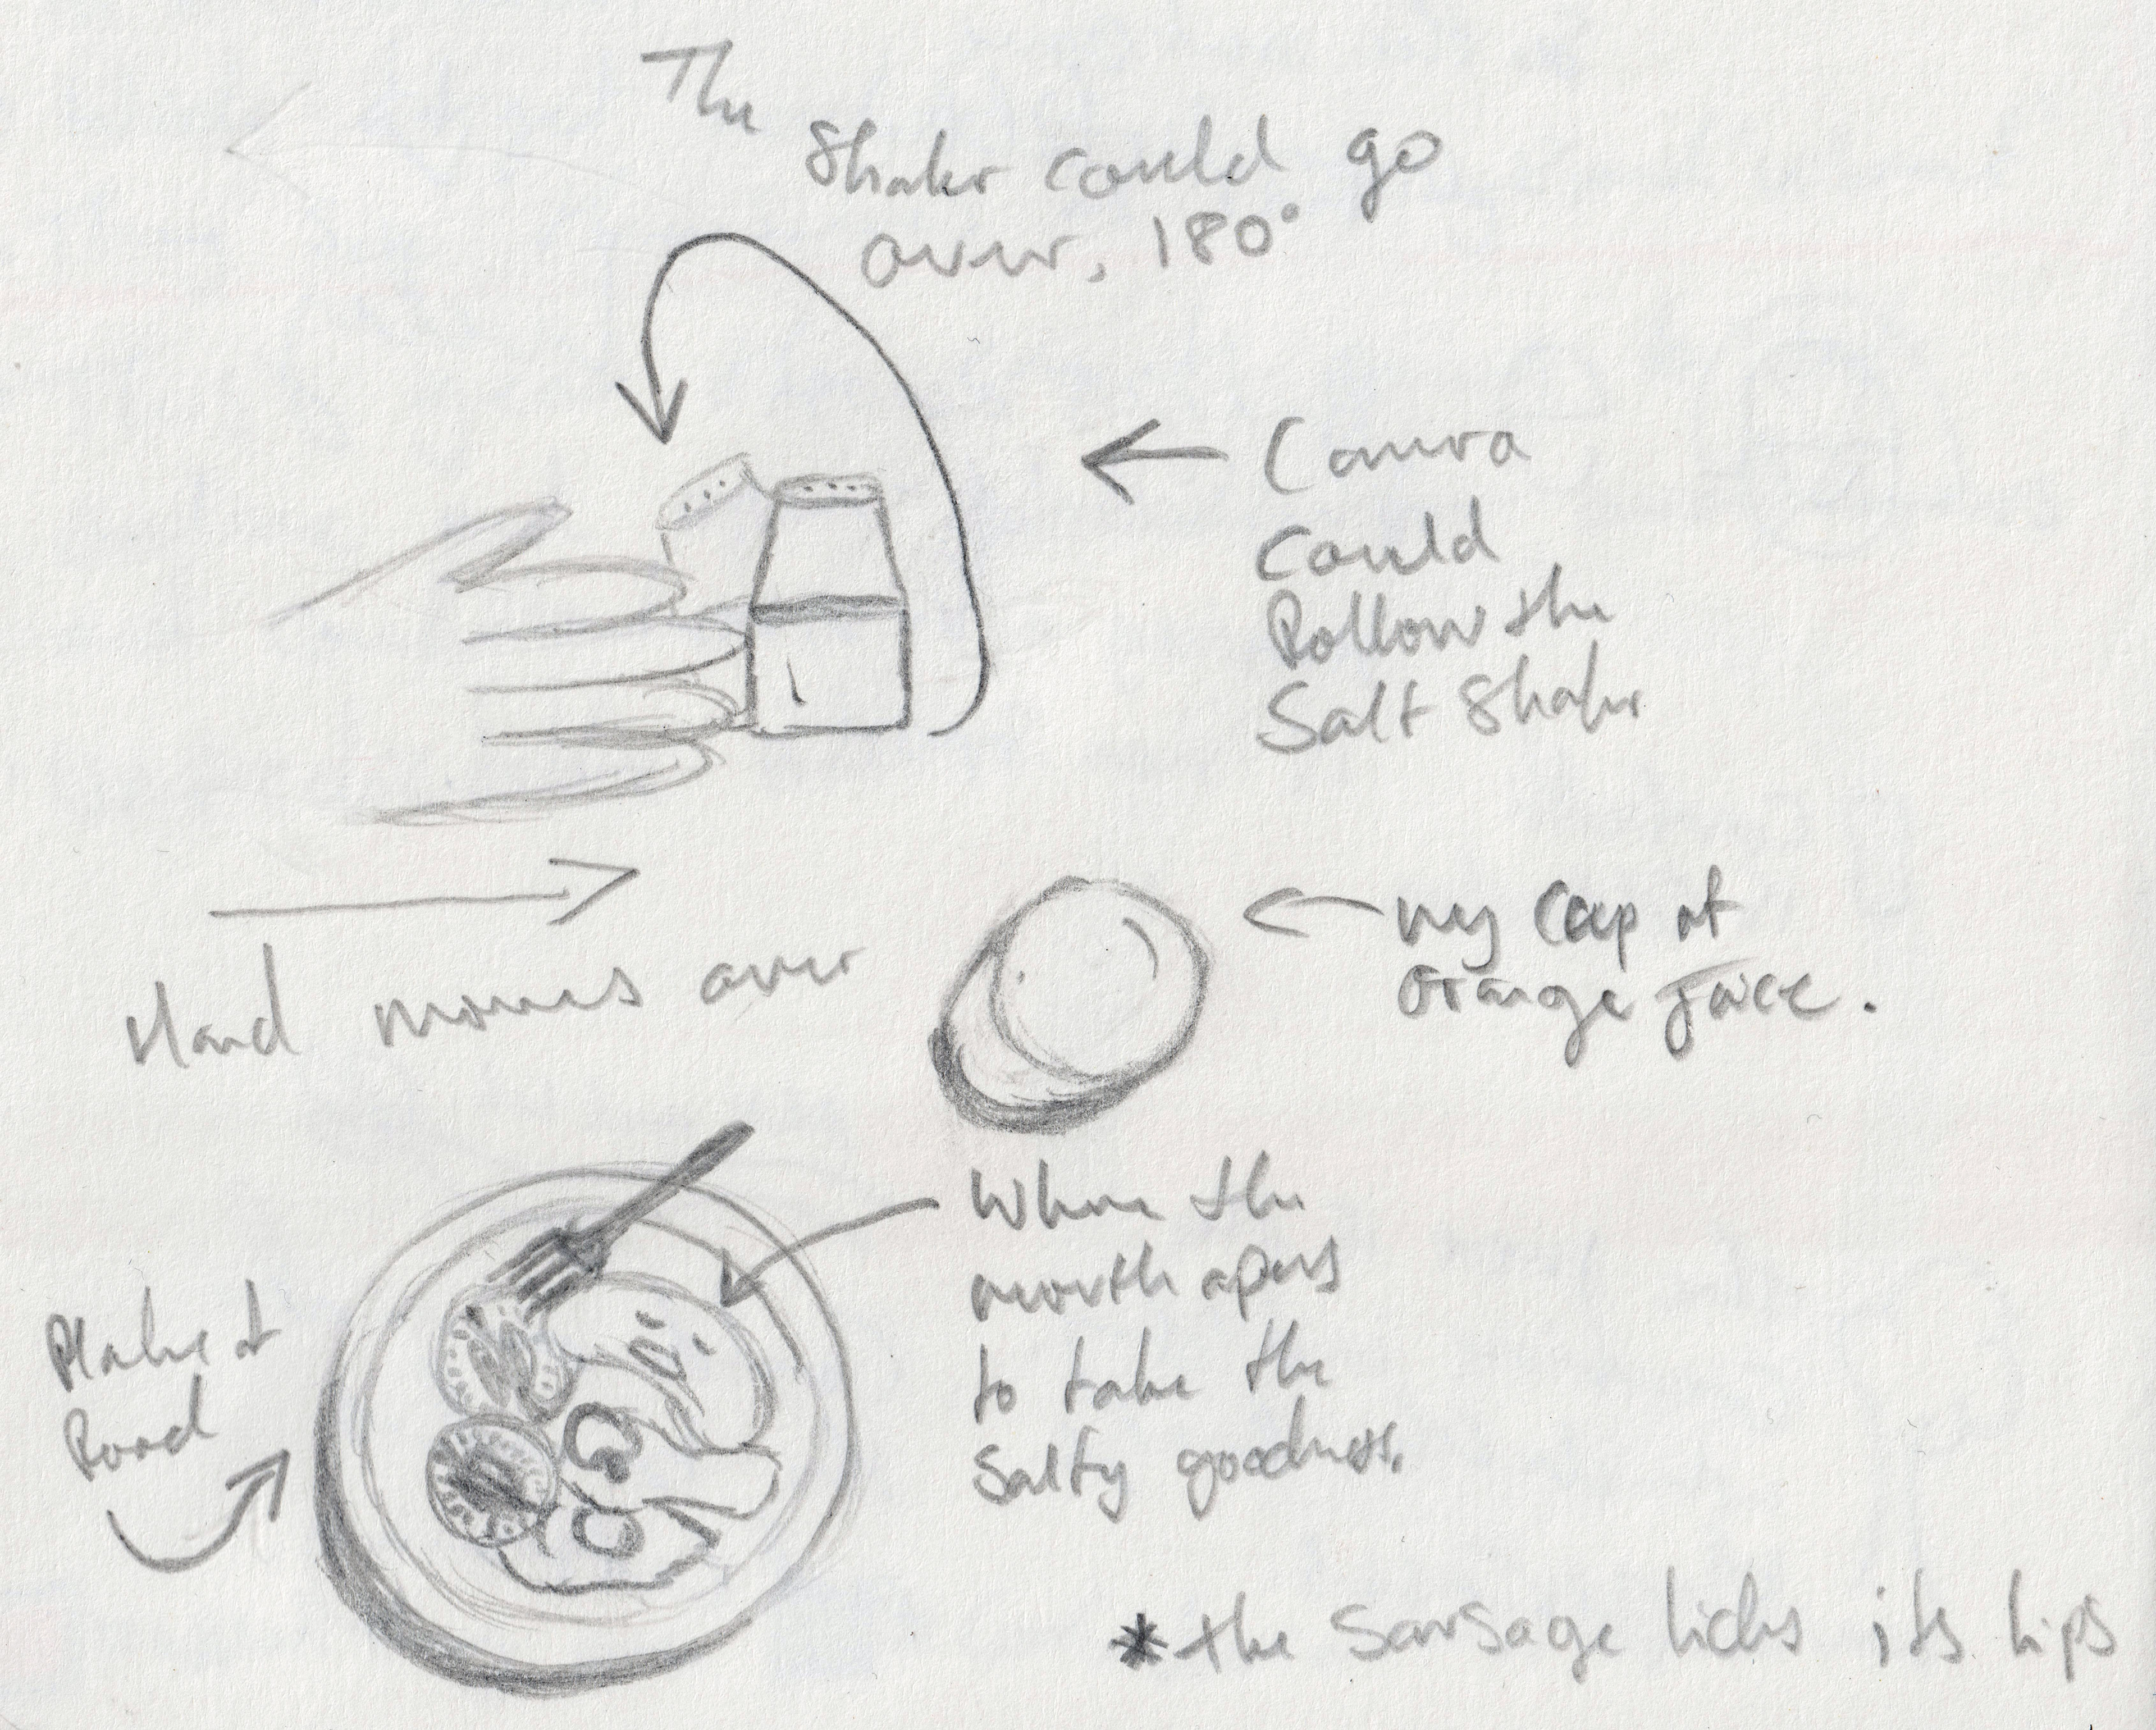 The
Shaker could go
over, 180°
Camera
Could
follow the
Salt Shaker
Hand moves over
my Cup of
Orange Juice.
Where the
mouth opens
to take the
Salty goodness.
Plate of
food
*the Sausage licks its lips